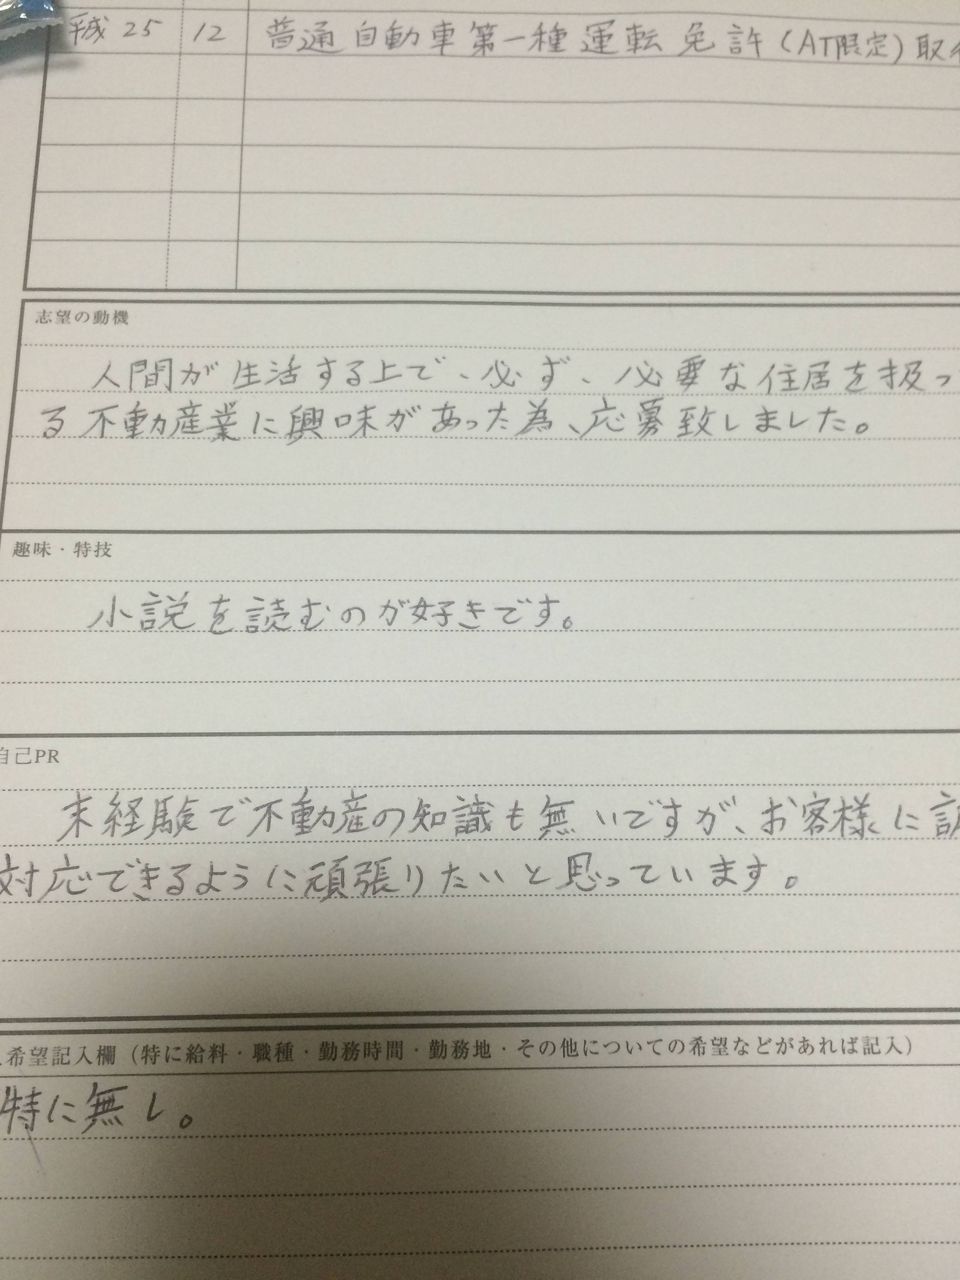 平成 25 12 普通自動車第一種運転免許(AT限定)取
志望の動機
人間が生活する上で、必ず、必要な住居を扱っ
る不動産業に興味があった為、応募致しました。
趣味・特技
小説を読むのが好きです。
自己PR
未経験で不動産の知識も無いですが、お客様に
対応できるように頑張りたいと思っています。
希望記入欄(特に給料・職種・勤務時間・勤務地・その他についての希望などがあれば記入)
特に無し。